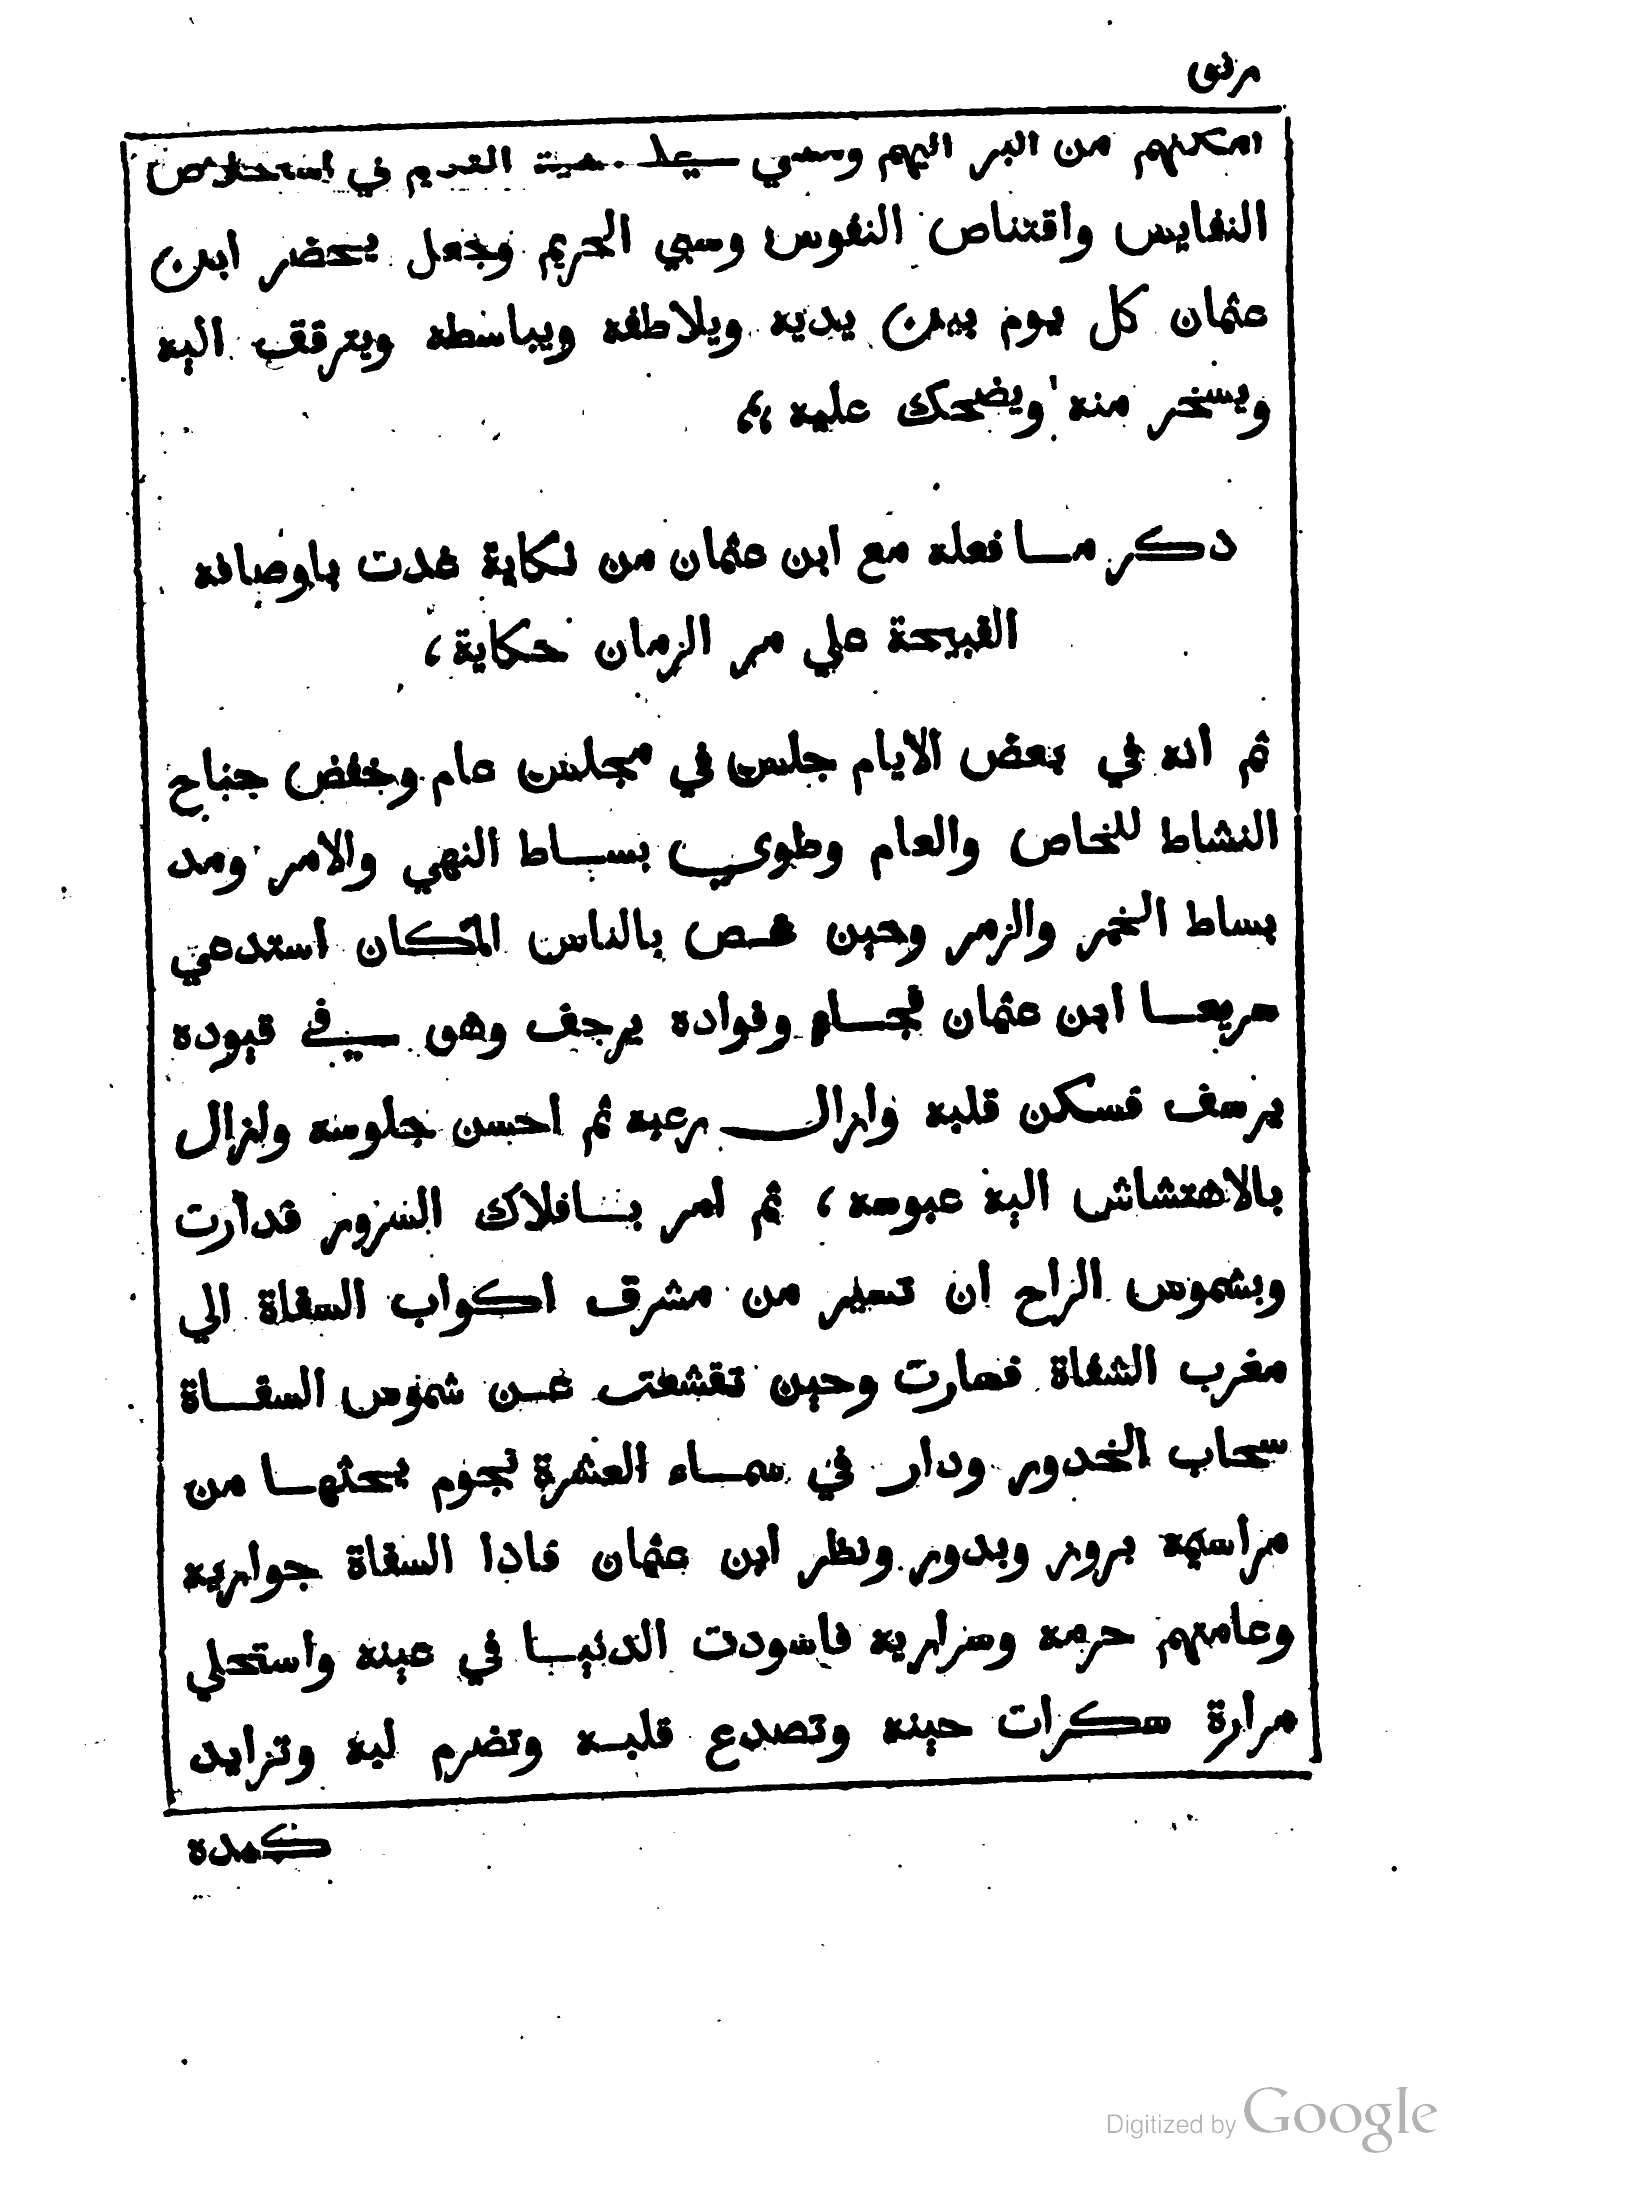 امكنهم من البر اليهم ومشي علي القديم في استخلاص
النفايس واقتناص النفوس وسبي الحريم وجعل يحضر ابن
عثمان كل يوم بين يديه ويلاطفه ويباسطه ويترقق اليه
ويسخر منه ويضحك عليه
دكر ما فعله مع ابن عثمان من نكاية غدت باوصافه
القبيحة علي مر الزمان حكاية،
ثم انه في بعض الايام جلس في مجلس عام وخفض جناح
النشاط للخاص والعام وطوي بساط النهي والامر ومد
بساط الخمر والزمر وحين غص بالناس المكان استدعي
سريعا ابن عثمان فجاء وفواده يرجف وهو في قيوده
يرسف فسكن قلبه وازال رعبه ثم احسن جلوسه وازال
بالاهتشاش اليه عبوسه، ثم امر بافلاك السرور فدارت
وبشموس الراح ان تسير من مشرق اكواب السقاة الي
مغرب الشفاة فسارت وحين تقشعت عن شموس السقاة
سحاب الخدور ودار في سماء العشرة نجوم بحثها من
مراسيمه بروز وبدور ونظر ابن عثمان فادا السقاة جواريه
وعامتهم حرمه وسراريه فاسودت الدنيا في عينه واستحلي
مرارة سكرات حينه وتصدع قلبه وتضرم لبه وتزايد
كمده
Digitized by Google